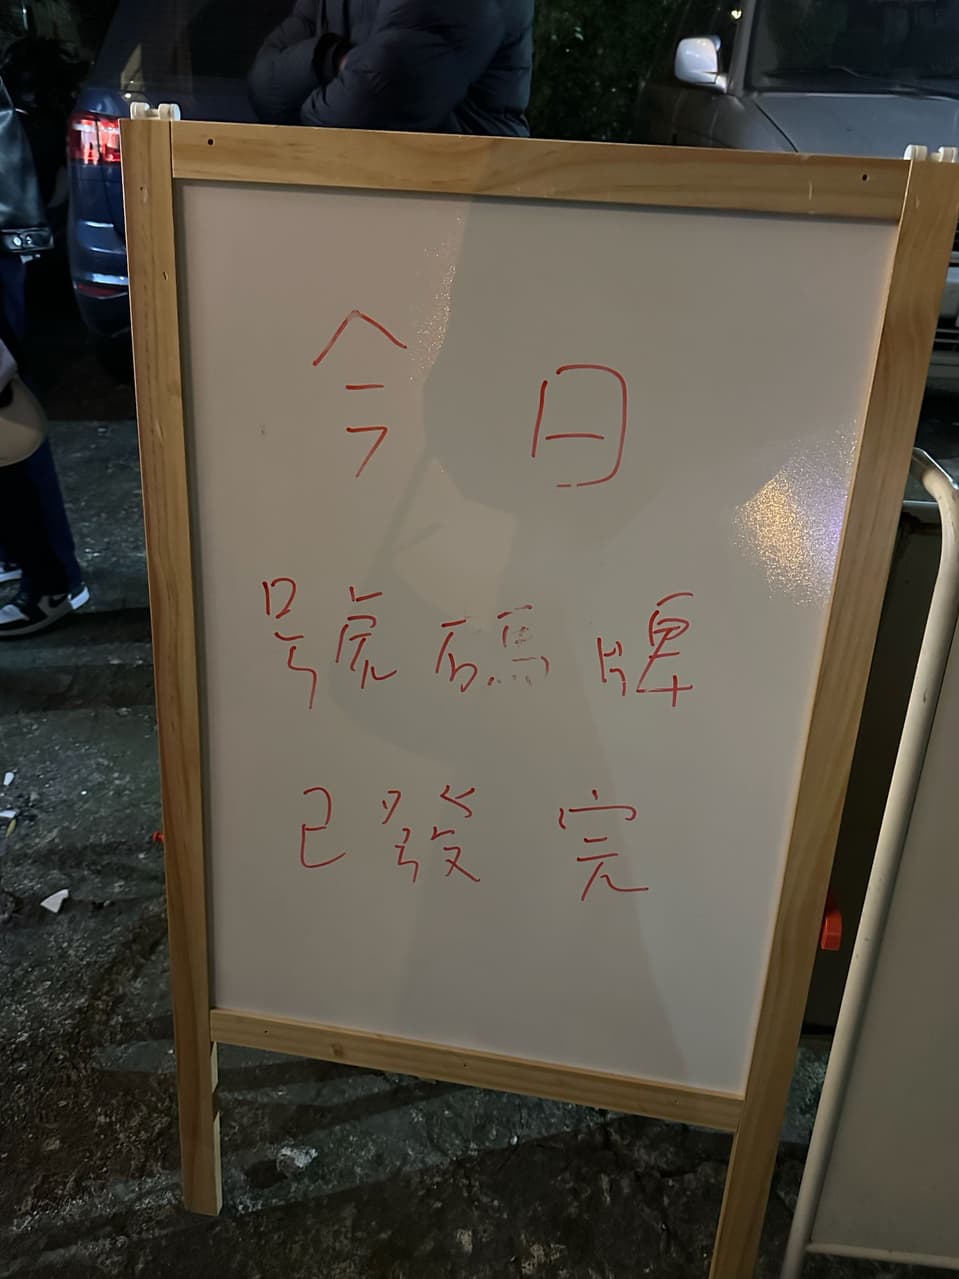 今日
號碼牌
已發完